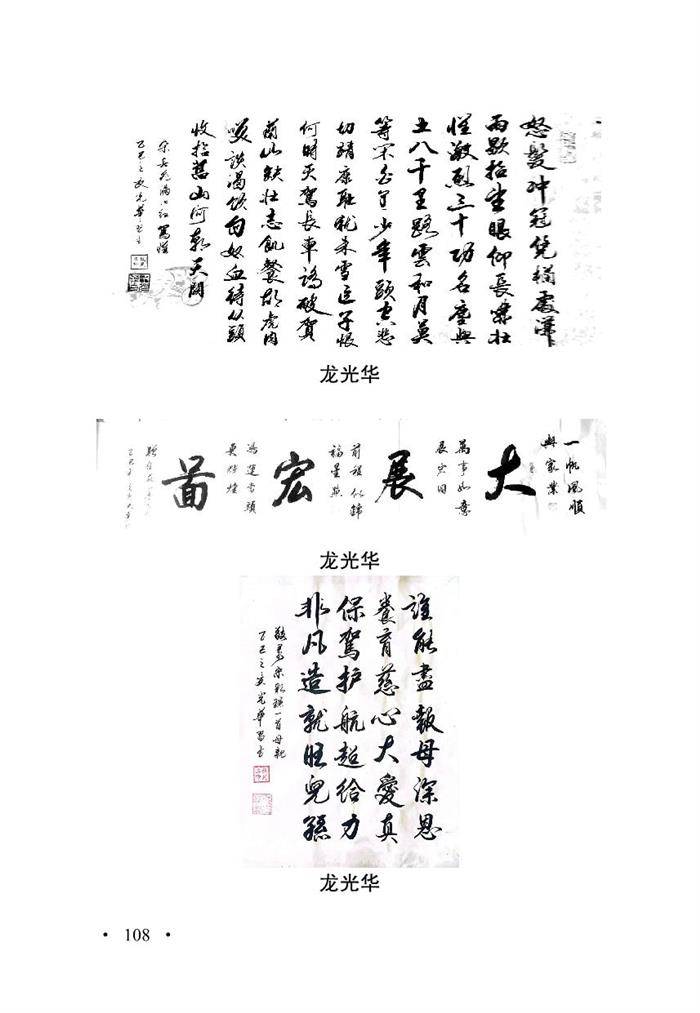 怒髮冲冠凭欄處潇
雨歇抬望眼仰長嘯壯
懷激烈三十功名塵與
土八千里路雲和月莫
等闲白了少年頭空悲
切靖康耻猶未雪臣子恨
何時灭駕長車踏破賀
蘭山缺壯志飢餐胡虜肉
笑談渴飲匈奴血待從頭
收拾舊山河朝天闕
宋岳飛滿江紅寫懷
乙巳之夏光華書
龙光华
一帆風順
興家業
大
萬事如意
展宏图
展
前程似錦
福星照
宏
鴻運當頭
更輝煌
圖
龙光华
誰能盡報母深恩
養育慈心大愛真
保駕护航超给力
非凡造就旺兒孫
乙巳之夏光華書
龙光华
• 108 •